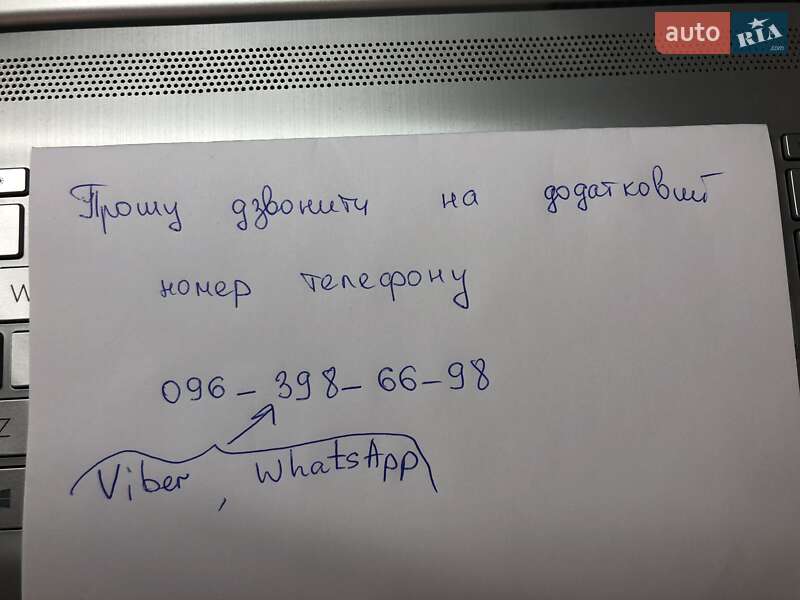 auto RIA.com
Прошу дзвонити на додатковий
номер телефону
096-398-66-98
Viber, WhatsApp
W
Z